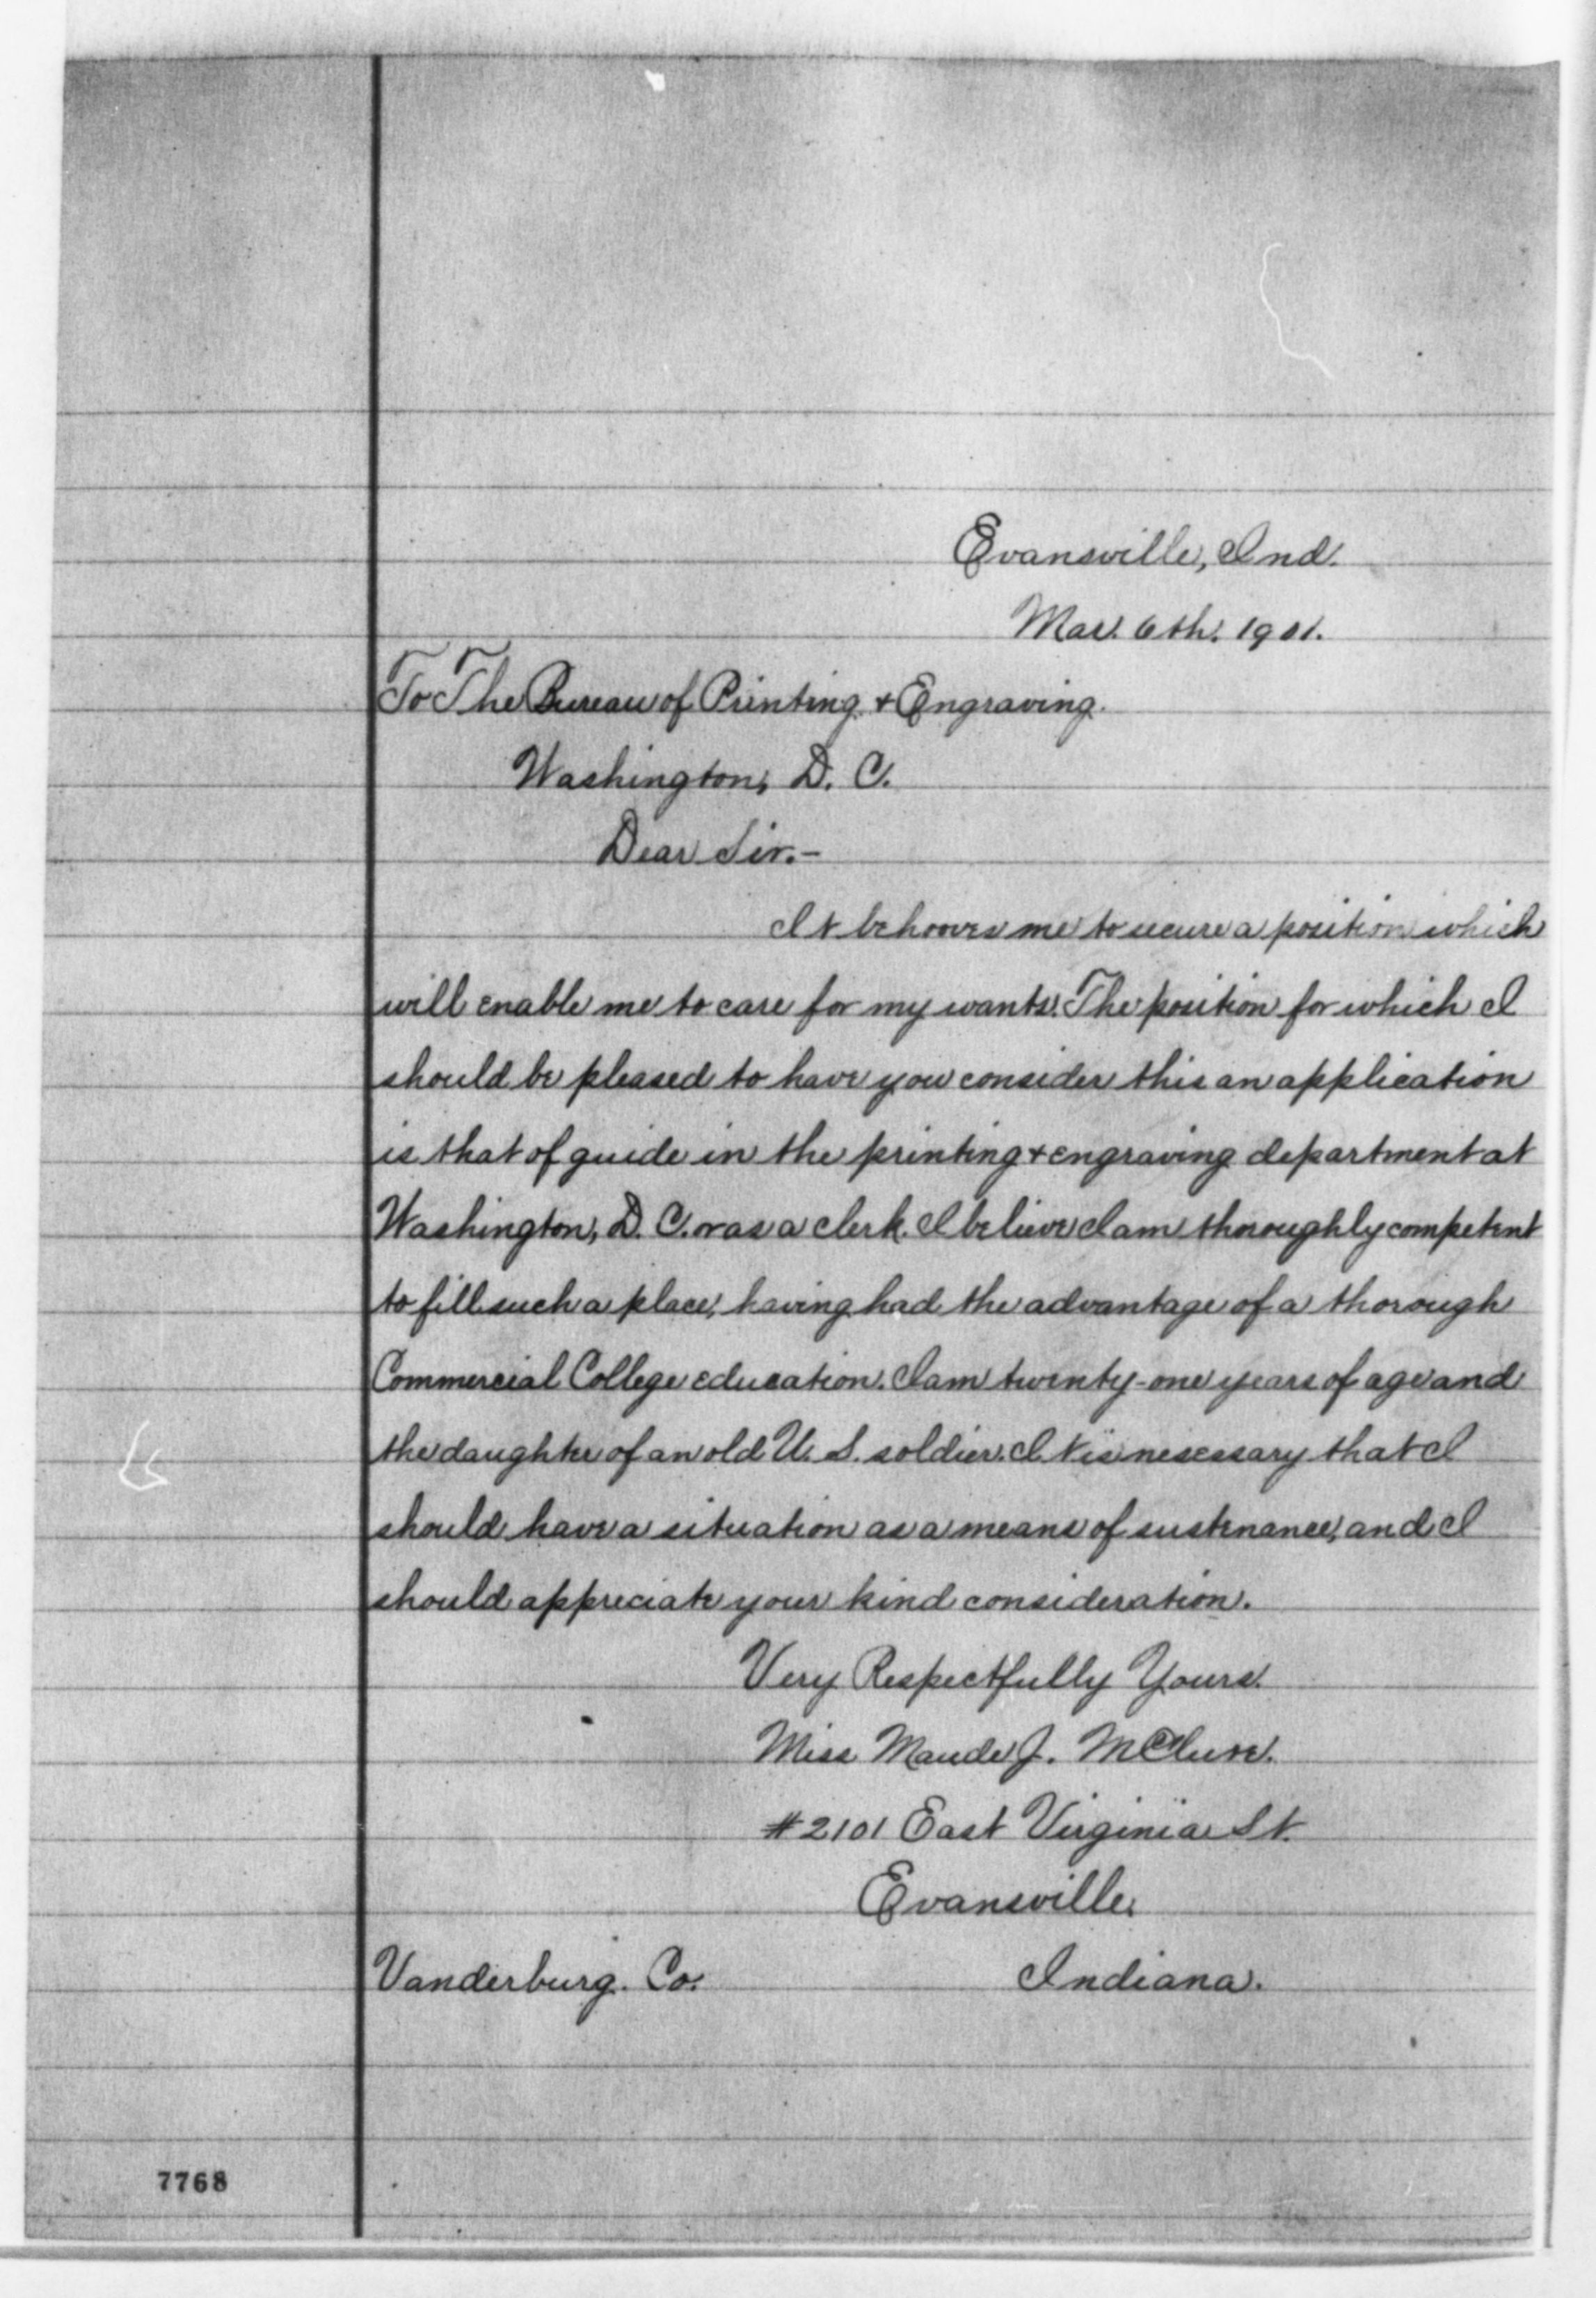 Evansville, Ind.
Mar. 6th. 1901.
To The Bureau of Printing & Engraving.
Washington, D. C.
Dear Sir.-
It behooves me to secure a position which
will enable me to care for my wants. The position for which I
should be pleased to have you consider this an application
is that of guide in the printing & engraving department at
Washington, D. C. or as a clerk. I believe I am thoroughly competent
to fill such a place, having had the advantage of a thorough
Commercial College education. I am twenty-one years of age and
the daughter of an old U. S. soldier. It is nesessary that I
should have a situation as a means of sustenance, and I
should appreciate your kind consideration.
Very Respectfully Yours.
Miss Maude J. McClure.
#2101 East Virginia St.
Evansville,
Vanderburg. Co. Indiana.
7768